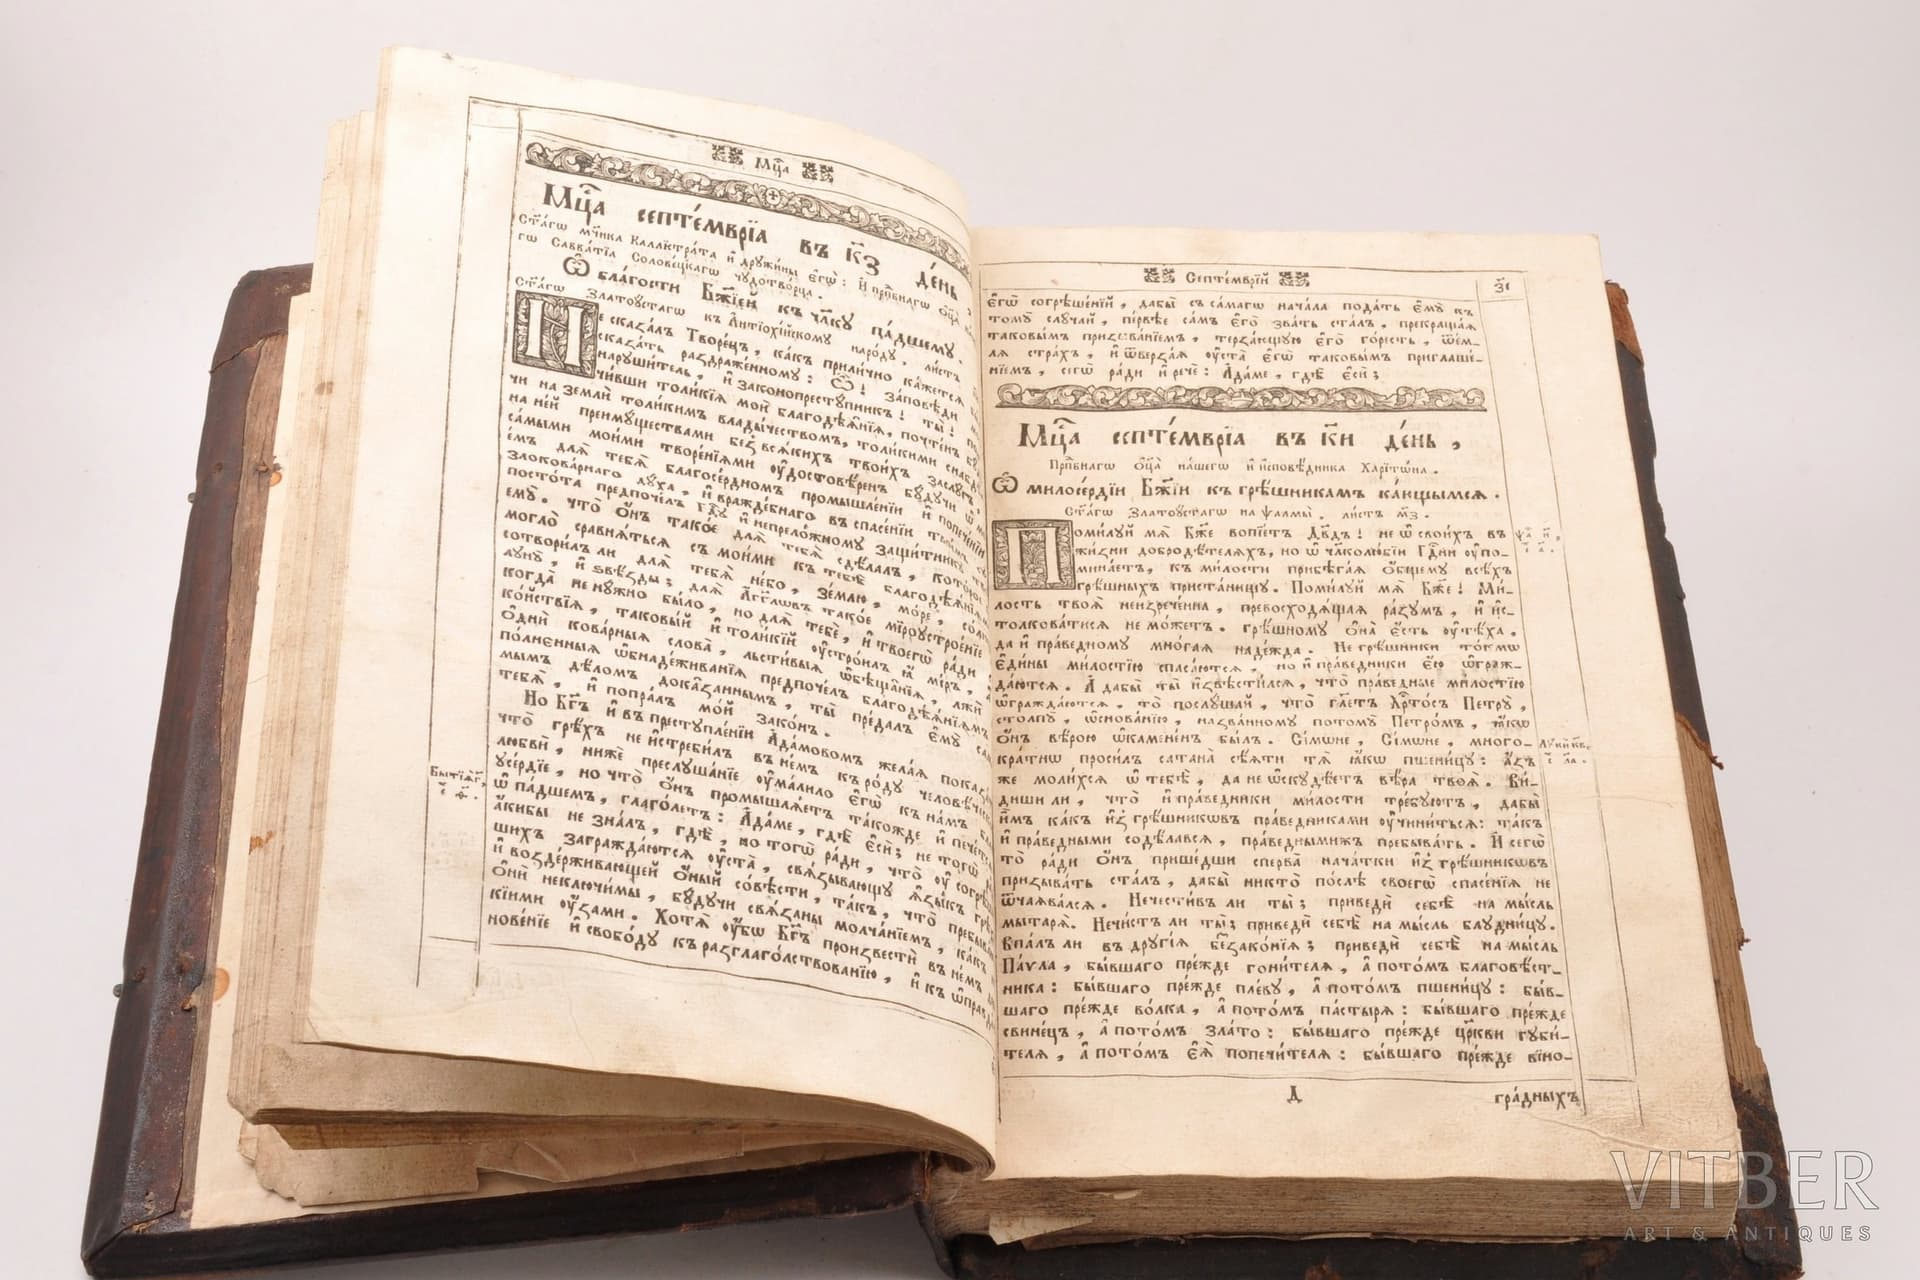 Мц҃а
Мц҃а септе́мврїа въ к҃з де́нь,
Ст҃а́гѡ мч҃ника Каллїстра́та и҆ дружи́ны є҆гѡ̀: И҆ прпⷣбнагѡ ѻ҆ц҃а̀
гѡ Савва́тїа Солове́цкагѡ чꙋдотво́рца.
Ѡ҆ бла́гости Бж҃їей къ чл҃кꙋ па́дшемꙋ.
Ст҃а́гѡ Златоꙋ́стагѡ къ А҆нтїохі́йскомꙋ наро́дꙋ. ли́стъ
Не сказа́лъ Творе́цъ, ка́къ прили́чно ка́жется
сказа́ть раздраже́нномꙋ: Ѽ! за́повѣди
нарꙋши́тель, и҆ законопрестꙋ́пникъ! ты̀!
чи́вши толи́кїя моѝ благодѣѧ̑нїя, почте́нъ
чи на землѝ толи́кимъ влады́чествомъ, толи́кими
на не́й преимꙋ́ществами без̾ вся́кихъ твои́хъ заслꙋ́гъ,
са́мыми мои́ми творе́нїями ᲂу҆достовѣ́ренъ бꙋ́дꙋчи ѡ҆
є́мъ для̀ тебѐ благосе́рдномъ промышле́нїи и҆ попече́нїи
злокова́рнаго дꙋ́ха, и҆ вражде́бнаго въ спасе́нїи
посто́та предпоче́лъ Гдⷭ҇ꙋ и҆ непрело́жномꙋ защи́тникꙋ
є҆мꙋ̀. что̀ ѻ҆́нъ тако́е для̀ тебѐ сдѣ́лалъ, кото́рое
могло̀ сравня́ться съ мои́ми къ тебѣ̀ благодѣѧ̑нїями
сотвори́лъ ли для̀ тебѐ не́бо, зе́млю, мо́ре,
лꙋнꙋ̀, и҆ ѕвѣ́зды; для̀ А҆́гг҃лѡвъ тако́е мїроꙋстрое́нїе
когда̀ не нꙋ́жно бы́ло, но для̀ тебѐ, и҆ твоегѡ̀ ра́ди
ко́йствїя, тако́вый и҆ толи́кїй ᲂу҆стро́илъ ꙗ҆̀ мі́ръ,
ѻ҆днѝ кова́рныя слова̀, льсти́выя ѡ҆бѣща́нїя, лжѝ
по́лненныя ѡ҆бнаде́живанїя предпоче́лъ благодѣѧ́нїямъ
мымъ дѣ́ломъ дока́заннымъ, ты̀ преда́лъ є҆мꙋ̀
тебя̀, и҆ попра́лъ мо́й зако́нъ.
Но Бг҃ъ и҆ въ престꙋпле́нїи А҆да́мовомъ жела́я
что̀ грѣ́хъ не и҆стреби́лъ въ не́мъ къ ро́дꙋ
любвѝ, нижѐ преслꙋша́нїе ᲂу҆ма́лило є҆гѡ̀ къ на́мъ
ᲂу҆се́рдїе, но что̀ ѻ҆́нъ промышля́етъ тако́жде и҆
ѡ҆ па́дшемъ, глаго́летъ: А҆да́ме, гдѣ̀ є҆сѝ; не того̀
а҆́кибы не зна́лъ, гдѣ̀, но тогѡ̀ ра́ди, что̀ ᲂу҆
шихъ загражда́ются ᲂу҆ста̀, свя́зывающꙋ ꙗ҆зы́къ
и҆ возде́рживающей ѻ҆́ный со́вѣсти, та́къ, что̀
ѻ҆нѝ неключи́мы, бꙋ́дꙋчи свя́заны молча́нїемъ, ка́къ
кїими ᲂу҆́зами. Хотя̀ ᲂу҆́бѡ Бг҃ъ произвестѝ въ не́мъ
нове́нїе и҆ свобо́дꙋ къ разглаго́льствованїю, и҆ къ
Бытїя̀ г҃,
Септе́мврїй
з҃і
є҆гѡ̀ согрѣше́нїй, дабы̀ съ са́магѡ нача́ла пода́ть є҆мꙋ̀ къ
томꙋ̀ слꙋ́чай, пе́рвѣе са́мъ є҆го̀ зва́ть ста́лъ, прекраща́я
таковы́мъ призыва́нїемъ, терза́ющꙋю є҆го̀ го́рѣсть, ѿе́м-
ля стра́хъ, и҆ ѿверза́я ᲂу҆ста̀ є҆гѡ̀ таковы́мъ приглаше́-
нїемъ, сегѡ̀ ра́ди и҆ речѐ: А҆да́ме, гдѣ̀ є҆сѝ;
Мц҃а септе́мврїа въ к҃и де́нь,
Прпⷣбнагѡ ѻ҆ц҃а̀ на́шегѡ и҆ и҆сповѣ́дника Харїтѡ́на.
Ѡ҆ милосе́рдїи Бж҃їи къ грѣ́шникамъ ка́ющымся.
Ст҃а́гѡ Златоꙋ́стагѡ на ѱалмы̀. ли́стъ м҃з.
Поми́лꙋй мя̀ Бж҃е вопїе́тъ Дв҃дъ! не ѡ҆ свои́хъ въ
жи́зни добродѣ́теляхъ, но ѡ҆ чл҃колю́бїи Гдⷭ҇ни ᲂу҆по-
мина́етъ, къ ми́лости прибѣга́я ѻ҆́бщемꙋ всѣ́хъ
грѣ́шныхъ приста́нищꙋ. Поми́лꙋй мя̀ Бж҃е! Ми́-
лость твоя̀ неизрече́нна, превосходя́щая ра́зꙋмъ, и҆ и҆с-
толкова́тися не мо́жетъ. грѣ́шномꙋ ѻ҆на̀ є҆́сть ᲂу҆тѣ́ха.
да и҆ пра́ведномꙋ мно́гая наде́жда. Не грѣ́шники то́кмѡ
є҆ди́ны ми́лостїю спаса́ются, но и҆ пра́ведники є҆́ю ѡ҆граж-
да́ются. А҆ дабы̀ ты̀ и҆звѣсти́лся, что̀ пра́ведные ми́лостїю
ѡ҆гражда́ются, то̀ послꙋ́шай, что̀ гл҃етъ Хрⷭ҇то́съ Петрꙋ̀,
столпꙋ̀, ѡ҆снова́нїю, на́званномꙋ потомꙋ̀ Петро́мъ, ꙗ҆́кѡ
ѻ҆́нъ вѣ́рою ѡ҆камене́нъ бы́лъ. Сі́мѡне, Сі́мѡне, мно́го-
кра́тнѡ проси́лъ сатана̀ сѣ́яти тя̀ ꙗ҆́кѡ пшени́цꙋ: а҆́зъ
же моли́хся ѡ҆ тебѣ̀, да не ѡ҆скꙋдѣ́етъ вѣ́ра твоя̀. Ви́-
диши ли, что̀ и҆ пра́ведники ми́лости тре́бꙋютъ, дабы̀
и҆̀мъ ка́къ и҆з̾ грѣ́шникѡвъ пра́ведниками ᲂу҆чини́ться: та́къ
и҆ пра́ведными содѣ́лався, пра́веднымижъ пребыва́ть. И҆ сегѡ̀
то̀ ра́ди ѻ҆́нъ прише́дши сперва̀ нача́тки и҆з̾ грѣ́шникѡвъ
призыва́ть ста́лъ, дабы̀ никто̀ по́слѣ своегѡ̀ спасе́нїя не
ѿча́явался. Нечести́въ ли ты̀; приведѝ себѣ̀ на мы́сль
мытаря̀. Нечи́стъ ли ты̀; приведѝ себѣ̀ на мы́сль блꙋдни́цꙋ.
Впа́лъ ли въ дрꙋгі́я беззако́нїя; приведѝ себѣ̀ на мы́сль
Па́ѵла, бы́вшаго пре́жде гони́теля, а҆ пото́мъ благовѣ́ст-
ника: бы́вшаго пре́жде пле́вꙋ, а҆ пото́мъ пшени́цꙋ: бы́в-
шаго пре́жде во́лка, а҆ пото́мъ па́стыря: бы́вшаго пре́жде
свине́цъ, а҆ пото́мъ зла́то: бы́вшаго пре́жде цр҃кви гꙋби́-
теля, а҆ пото́мъ є҆я̀ попечи́теля: бы́вшаго пре́жде вїно-
Д
гра́дныхъ
Лꙋкѝ к҃в,
VITBER
ART & ANTIQUES